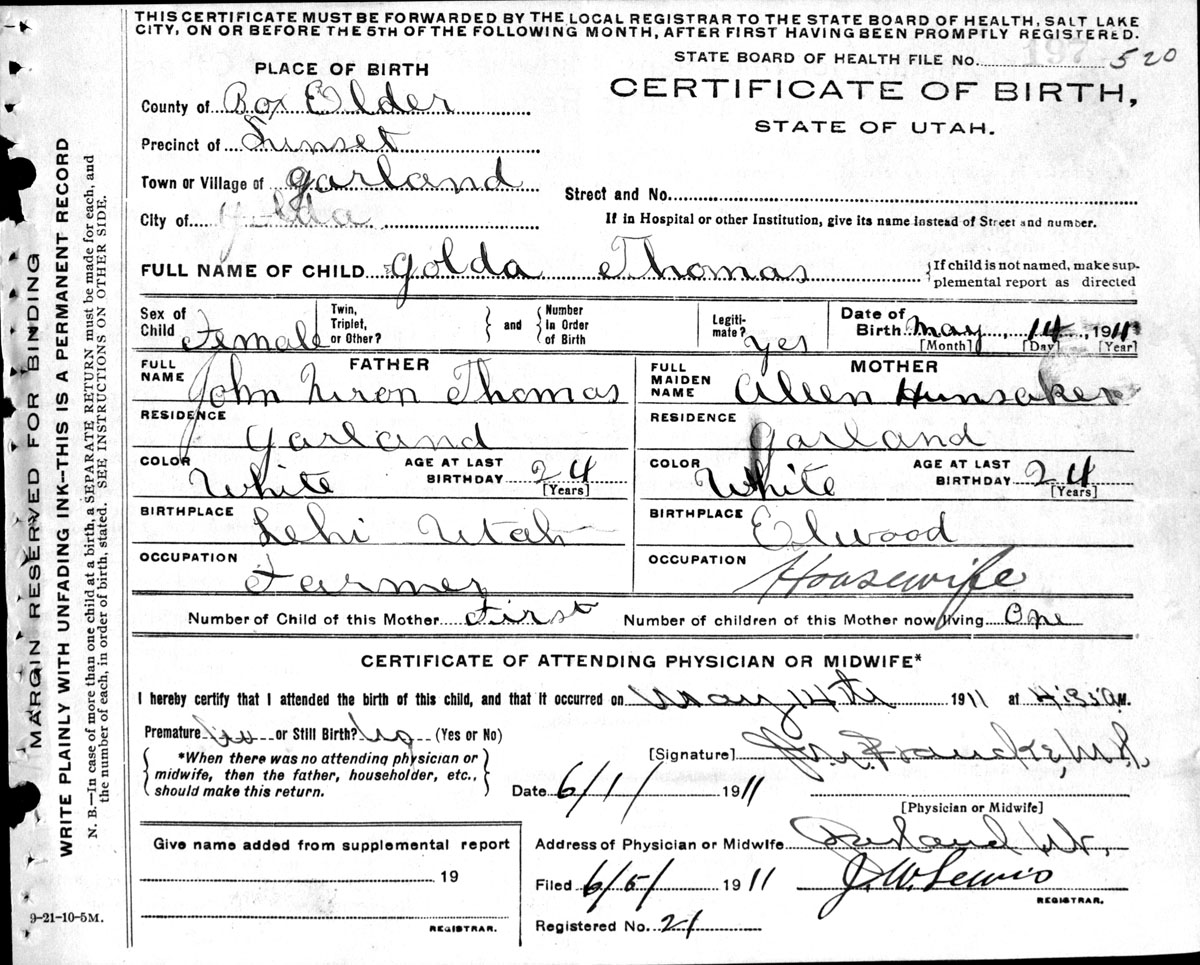 THIS CERTIFICATE MUST BE FORWARDED BY THE LOCAL REGISTRAR TO THE STATE BOARD OF HEALTH, SALT LAKE
CITY, ON OR BEFORE THE 5TH OF THE FOLLOWING MONTH, AFTER FIRST HAVING BEEN PROMPTLY REGISTERED.
197
STATE BOARD OF HEALTH FILE No. 520
PLACE OF BIRTH
CERTIFICATE OF BIRTH,
STATE OF UTAH.
County of Box Elder
Precinct of Sunset
Town or Village of Garland
Street and No.
City of
If in Hospital or other Institution, give its name instead of Street and number.
FULL NAME OF CHILD Golda Thomas
If child is not named, make sup-
plemental report as directed
Sex of Child Female
Twin, Triplet, or Other?
and
Number In Order of Birth
Legiti- mate? Yes
Date of Birth May 14, 1911
[Month] [Day] [Year]
FATHER
FULL NAME John Thomas
MOTHER
FULL MAIDEN NAME Allen Hunsaker
RESIDENCE Garland
RESIDENCE Garland
COLOR White AGE AT LAST BIRTHDAY 24 [Years]
COLOR White AGE AT LAST BIRTHDAY 24 [Years]
BIRTHPLACE Lehi Utah
BIRTHPLACE Elwood
OCCUPATION Farmer
OCCUPATION Housewife
Number of Child of this Mother First Number of children of this Mother now living One
CERTIFICATE OF ATTENDING PHYSICIAN OR MIDWIFE*
I hereby certify that I attended the birth of this child, and that it occurred on May 14th 1911 at
Premature or Still Birth? (Yes or No)
*When there was no attending physician or
midwife, then the father, householder, etc.,
should make this return.
[Signature]
Date 6/1/ 1911
[Physician or Midwife]
Give name added from supplemental report
19
REGISTRAR.
Address of Physician or Midwife Garland Ut.
Filed 6/5/ 1911 J. W. Lewis
REGISTRAR.
Registered No. 21
9-21-10-5M.
MARGIN RESERVED FOR BINDING
WRITE PLAINLY WITH UNFADING INK—THIS IS A PERMANENT RECORD
N. B.—In case of more than one child at a birth, a SEPARATE RETURN must be made for each, and
the number of each, in order of birth, stated. SEE INSTRUCTIONS ON OTHER SIDE.